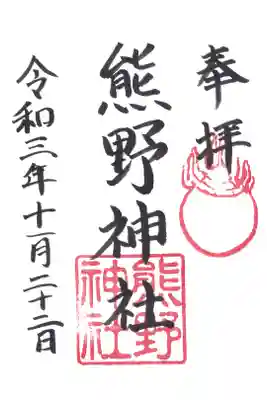 奉拝
熊野神社
熊野神社
令和三年十一月二十二日